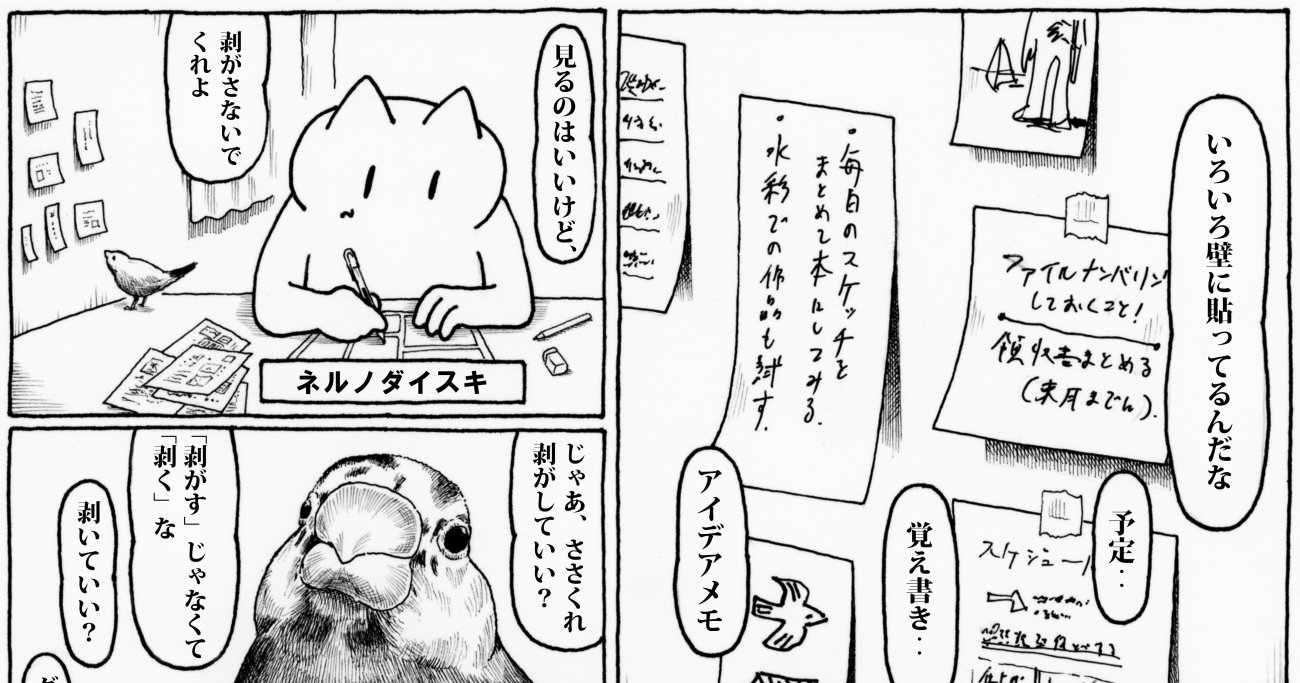 いろいろ壁に貼ってるんだな
ファイルナンバリング
しておくこと!
領収書まとめる
(来月までに).
・毎日のスケッチを
まとめて本にしてみる.
・水彩での作品も試す.
予定‥
スケジュール
覚え書き‥
アイデアメモ
見るのはいいけど、
剥がさないで
くれよ
ネルノダイスキ
じゃあ、ささくれ
剥がしていい?
「剥がす」じゃなくて
「剥く」な
剥いていい?